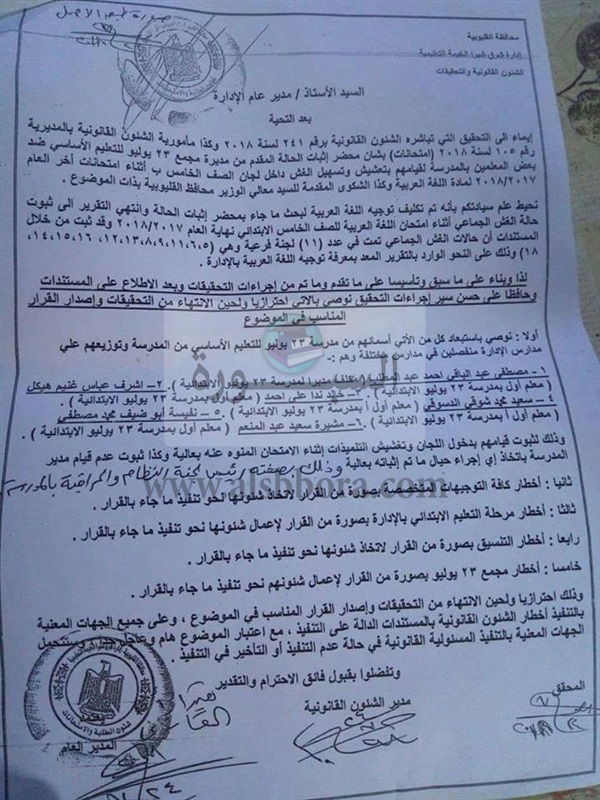 صورة طبق الأصل
محافظة القليوبية
إدارة شرق شبرا الخيمة التعليمية
الشئون القانونية والتحقيقات
السيد الأستاذ / مدير عام الإدارة
بعد التحية
إيماء الى التحقيق التي تباشره الشئون القانونية برقم ٢٤١ لسنة ٢٠١٨ وكذا مأمورية الشئون القانونية بالمديرية
رقم ١٠٥ لسنة ٢٠١٨ (امتحانات) بشان محضر إثبات الحالة المقدم من مديرة مجمع ٢٣ يوليو للتعليم الأساسي ضد
بعض المعلمين بالمدرسة لقيامهم بتغشيش وتسهيل الغش داخل لجان الصف الخامس ب أثناء امتحانات أخر العام
٢٠١٨/٢٠١٧ لمادة اللغة العربية وكذا الشكوى المقدمة للسيد معالي الوزير محافظ القليوبية بذات الموضوع .
نحيط علم سيادتكم بأنه تم تكليف توجيه اللغة العربية لبحث ما جاء بمحضر إثبات الحالة وانتهي التقرير الى ثبوت
حالة الغش الجماعي أثناء امتحان اللغة العربية للصف الخامس الابتدائي نهاية العام ٢٠١٨/٢٠١٧ وقد ثبت من خلال
المستندات أن حالات الغش الجماعي تمت في عدد (١١) لجنة فرعية وهي (٥،٦،١١،٩،٨،١٣،١٢،١٦،١٥،١٤،
١٨) وذلك على النحو الوارد بالتقرير المعد بمعرفة توجيه اللغة العربية بالإدارة .
لذا وبناء على ما سبق وتأسيسا على ما تقدم وما تم من إجراءات التحقيقات وبعد الاطلاع على المستندات
وحفاظا على حسن سير إجراءات التحقيق نوصي بالاتي احترازيا ولحين الانتهاء من التحقيقات وإصدار القرار
المناسب في الموضوع
أولا : نوصي باستبعاد كل من الأتي أسمائهم من مدرسة ٢٣ يوليو للتعليم الأساسي من المدرسة وتوزيعهم علي
مدارس الإدارة منفصلين في مدارس مختلفة وهم :-
١- مصطفى عبد الباقي احمد عبد المطلب ( مكلف مديرا لمدرسة ٢٣ يوليو الابتدائية ) . ٢- اشرف عباس غنيم هيكل
( معلم أول بمدرسة ٢٣ يوليو الابتدائية ) . ٣- خالد ندا على احمد ( معلم أول بمدرسة ٢٣ يوليو الابتدائية ) .
٤- سعيد محمد شوقي الدسوقي ( معلم أول أ بمدرسة ٢٣ يوليو الابتدائية ) . ٥- نفيسة أبو ضيف محمد مصطفي (
معلم أول أ بمدرسة ٢٣ يوليو الابتدائية ) . ٦- مشيرة سعيد عبد المنعم ( معلم أول بمدرسة ٢٣ يوليو الابتدائية ) .
وذلك لثبوت قيامهم بدخول اللجان وتغشيش التلميذات إثناء الامتحان المنوه عنه بعالية وكذا ثبوت عدم قيام مدير
المدرسة باتخاذ إي إجراء حيال ما تم إثباته بعالية وذلك بصفته رئيس لجنة النظام والمراقبة بالمدرسة
ثانيا : أخطار كافة التوجيهات المختصة بصورة من القرار لاتخاذ شئونها نحو تنفيذ ما جاء بالقرار.
ثالثا : أخطار مرحلة التعليم الابتدائي بالإدارة بصورة من القرار لإعمال شئونها نحو تنفيذ ما جاء بالقرار .
رابعا : أخطار التنسيق بصورة من القرار لاتخاذ شئونها نحو تنفيذ ما جاء بالقرار .
خامسا : أخطار مجمع ٢٣ يوليو بصورة من القرار لإعمال شئونهم نحو تنفيذ ما جاء بالقرار .
وذلك احترازيا ولحين الانتهاء من التحقيقات وإصدار القرار المناسب في الموضوع ، وعلى جميع الجهات المعنية
بالتنفيذ أخطار الشئون القانونية بالمستندات الدالة على التنفيذ ، مع اعتبار الموضوع هام وعاجل جدا وستتحمل
الجهات المعنية بالتنفيذ المسئولية القانونية في حالة عدم التنفيذ أو التأخير في التنفيذ .
وتفضلوا بقبول فائق الاحترام والتقدير
المحقق
مدير الشئون القانونية
المدير العام
شئون الطلبة والامتحانات
السبورة
www.alsbbora.com